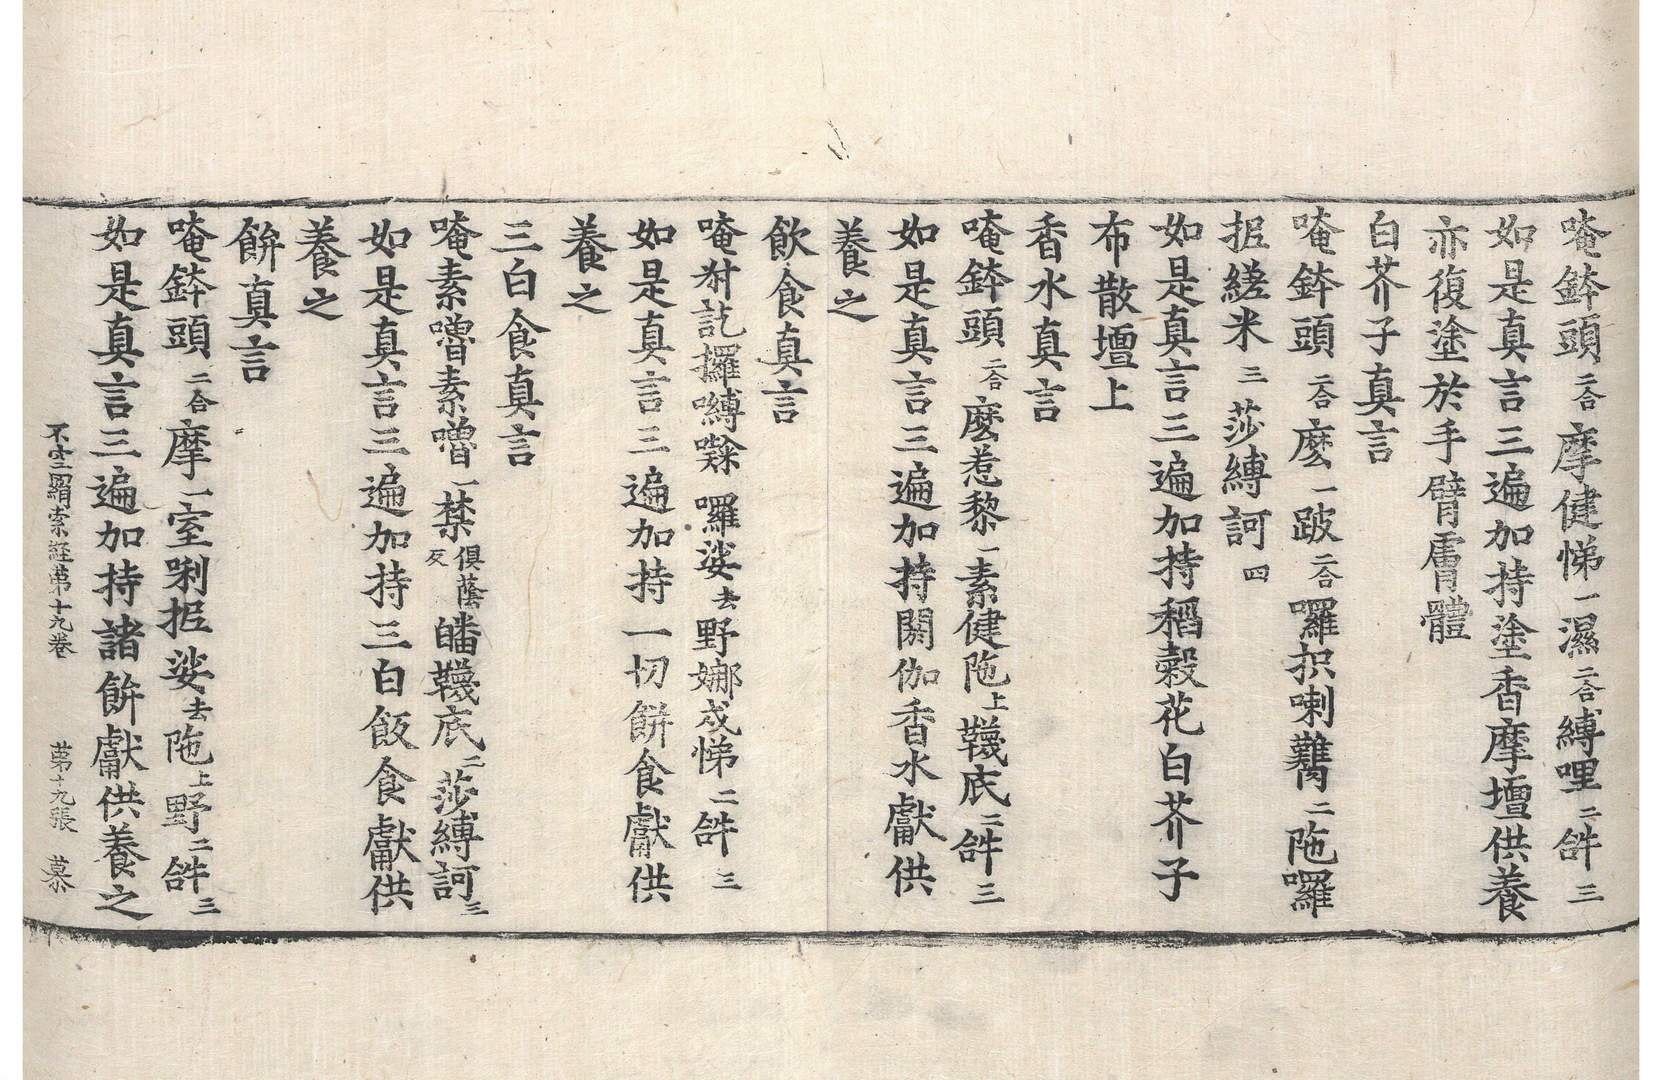 唵鉢頭二合摩健悌一濕二合縛哩二𤙖三
如是真言三遍加持塗香摩壇供養
亦復塗於手臂膚體
白芥子真言
唵鉢頭二合麽一跛二合囉抧喇䪍二陁囉
抳縒米三莎縛訶四
如是真言三遍加持稻穀花白芥子
布散壇上
香水真言
唵鉢頭二合麽惹黎一素健陁上韈底二𤙖三
如是真言三遍加持閼伽香水獻供
養之
飲食真言
唵弭訖攞縛囉娑去野娜戍悌二𤙖三
如是真言三遍加持一切餅食獻供
養之
三白食真言
唵素嚕素嚕一禁俱蔭反皤韈底二莎縛訶三
如是真言三遍加持三白飯食獻供
養之
缾真言
唵鉢頭二合摩一室唎抳娑去陁上野二𤙖三
如是真言三遍加持諸缾獻供養之
不空羂索経第十九卷　第十九張　慕